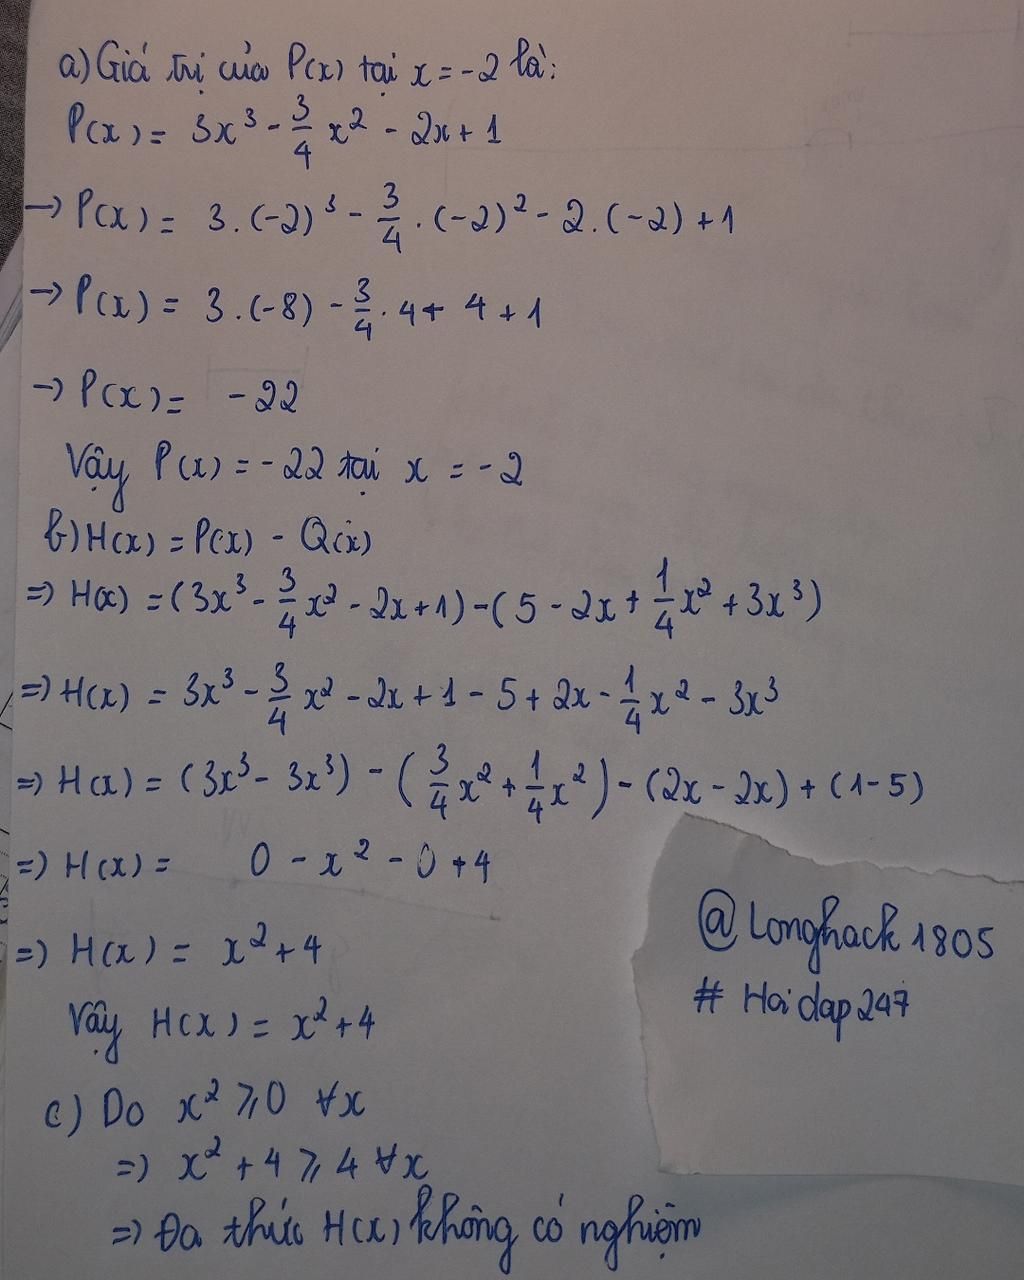 a) Giá trị của P(x) tại x = -2 là:
P(x) = 3x³ - 3/4 x² - 2x + 1
→ P(x) = 3.(-2)³ - 3/4 . (-2)² - 2.(-2) + 1
→ P(x) = 3.(-8) - 3/4 . 4 + 4 + 1
→ P(x) = -22
Vậy P(x) = -22 tại x = -2
b) H(x) = P(x) - Q(x)
⇒ H(x) = (3x³ - 3/4 x² - 2x + 1) - (5 - 2x + 1/4 x² + 3x³)
⇒ H(x) = 3x³ - 3/4 x² - 2x + 1 - 5 + 2x - 1/4 x² - 3x³
⇒ H(x) = (3x³ - 3x³) - (3/4 x² + 1/4 x²) - (2x - 2x) + (1-5)
⇒ H(x) = 0 - x² - 0 + 4
⇒ H(x) = x² + 4
Vậy H(x) = x² + 4
c) Do x² ⩾ 0 ∀x
⇒ x² + 4 ⩾ 4 ∀x
⇒ Đa thức H(x) không có nghiệm
@Longhack1805
# Hoidap247